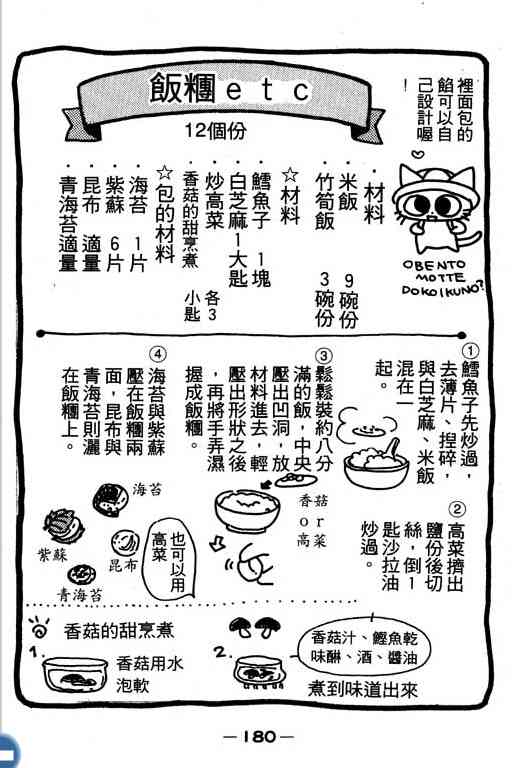 飯糰etc
12個份
裡面包的
餡可以自
己設計喔
!
OBENTO
MOTTE
DOKOIKUNO?
·材料
米飯 9碗份
·竹筍飯 3碗份
☆材料
鱈魚子 1塊
白芝麻1大匙
·炒高菜
香菇的甜烹煮 各3小匙
☆包的材料
·海苔 1片
·紫蘇 6片
·昆布 適量
·青海苔適量
①鱈魚子先炒過,
去薄片、捏碎,
與白芝麻、米飯
混在一
起。
②高菜擠出
鹽份後切
絲,倒1
匙沙拉油
炒過。
③鬆鬆裝約八分
滿的飯,中央
壓出凹洞,放
材料進去,輕
壓出形狀之後
,再將手弄濕
握成飯糰。
香菇
or
高菜
④海苔與紫蘇
壓在飯糰兩
面,昆布與
青海苔則灑
在飯糰上。
海苔
紫蘇
昆布
青海苔
也可以用
高菜
香菇的甜烹煮
1.
香菇用水
泡軟
2.
香菇汁、鰹魚乾
味醂、酒、醬油
煮到味道出來
—180—